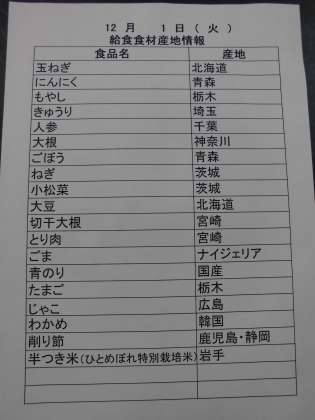 12 月 1日(火)
給食食材産地情報
食品名 産地
玉ねぎ 北海道
にんにく 青森
もやし 栃木
きゅうり 埼玉
人参 千葉
大根 神奈川
ごぼう 青森
ねぎ 茨城
小松菜 茨城
大豆 北海道
切干大根 宮崎
とり肉 宮崎
ごま ナイジェリア
青のり 国産
たまご 栃木
じゃこ 広島
わかめ 韓国
削り節 鹿児島・静岡
半つき米(ひとめぼれ特別栽培米) 岩手